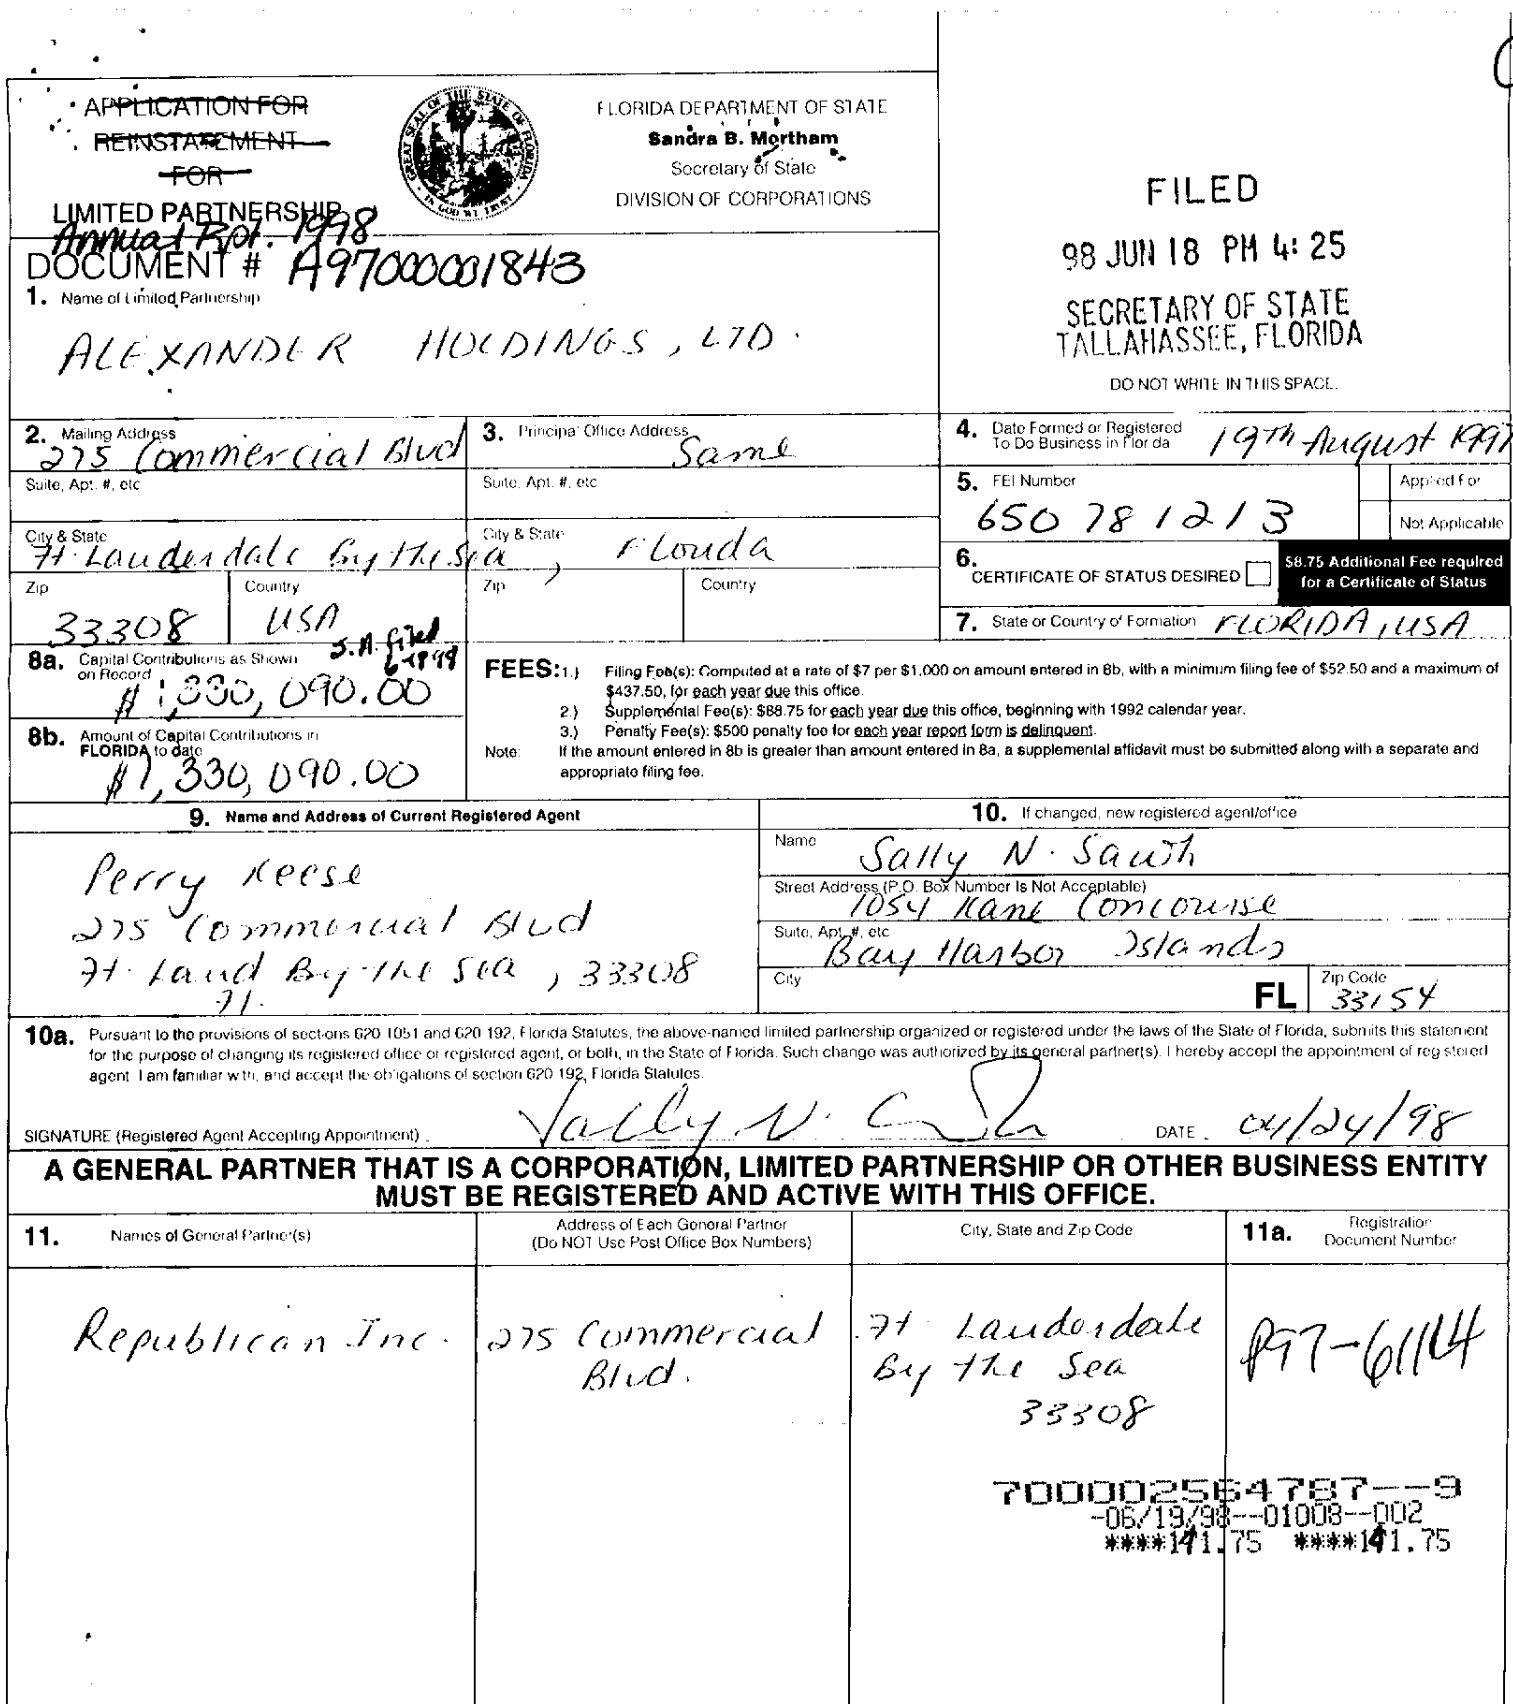 APPLICATION FOR
REINSTATEMENT
FOR
LIMITED PARTNERSHIP
Annual Rpt. 1998
GREAT SEAL OF THE STATE OF FLORIDA
IN GOD WE TRUST
FLORIDA DEPARTMENT OF STATE
Sandra B. Mortham
Secretary of State
DIVISION OF CORPORATIONS
FILED
98 JUN 18 PM 4:25
SECRETARY OF STATE
TALLAHASSEE, FLORIDA
DO NOT WRITE IN THIS SPACE.
DOCUMENT # A97000001843
1. Name of Limited Partnership
ALEXANDER HOLDINGS, LTD.
2. Mailing Address
275 Commercial Blvd
Suite, Apt. #, etc
City & State
Ft. Lauderdale By the Sea, Florida
Zip
33308
Country
USA
3. Principal Office Address
Same
Suite, Apt. #, etc
City & State
Zip
Country
4. Date Formed or Registered
To Do Business in Florida
19th August 1997
5. FEI Number
650781213
Applied For
Not Applicable
6. CERTIFICATE OF STATUS DESIRED
$8.75 Additional Fee required
for a Certificate of Status
7. State or Country of Formation FLORIDA, USA
8a. Capital Contributions as Shown
on Record
S.A. filed
$1,330,090.00
8b. Amount of Capital Contributions in
FLORIDA to date
$1,330,090.00
FEES: 1.) Filing Fee(s): Computed at a rate of $7 per $1,000 on amount entered in 8b, with a minimum filing fee of $52.50 and a maximum of
$437.50, for each year due this office.
2.) Supplemental Fee(s): $88.75 for each year due this office, beginning with 1992 calendar year.
3.) Penalty Fee(s): $500 penalty fee for each year report form is delinquent.
Note: If the amount entered in 8b is greater than amount entered in 8a, a supplemental affidavit must be submitted along with a separate and
appropriate filing fee.
9. Name and Address of Current Registered Agent
Perry Reese
275 Commercial Blvd
Ft. Laud By-the Sea, 33308
Fl.
10. If changed, new registered agent/office
Name
Sally N. Sawh
Street Address (P.O. Box Number Is Not Acceptable)
1054 Kane Concourse
Suite, Apt. #, etc
Bay Harbor Islands
City
FL
Zip Code
33154
10a. Pursuant to the provisions of sections 620.1051 and 620.192, Florida Statutes, the above-named limited partnership organized or registered under the laws of the State of Florida, submits this statement
for the purpose of changing its registered office or registered agent, or both, in the State of Florida. Such change was authorized by its general partner(s). I hereby accept the appointment of registered
agent. I am familiar with, and accept the obligations of section 620.192, Florida Statutes.
SIGNATURE (Registered Agent Accepting Appointment) Sally N.
DATE 04/24/98
A GENERAL PARTNER THAT IS A CORPORATION, LIMITED PARTNERSHIP OR OTHER BUSINESS ENTITY
MUST BE REGISTERED AND ACTIVE WITH THIS OFFICE.
11. Names of General Partner(s)
Address of Each General Partner
(Do NOT Use Post Office Box Numbers)
City, State and Zip Code
11a. Registration
Document Number
Republican Inc.
275 Commercial
Blvd.
Ft. Lauderdale
By the Sea
33308
P97-61114
700002564787--9
-06/19/98--01008--002
****141.75 ****141.75